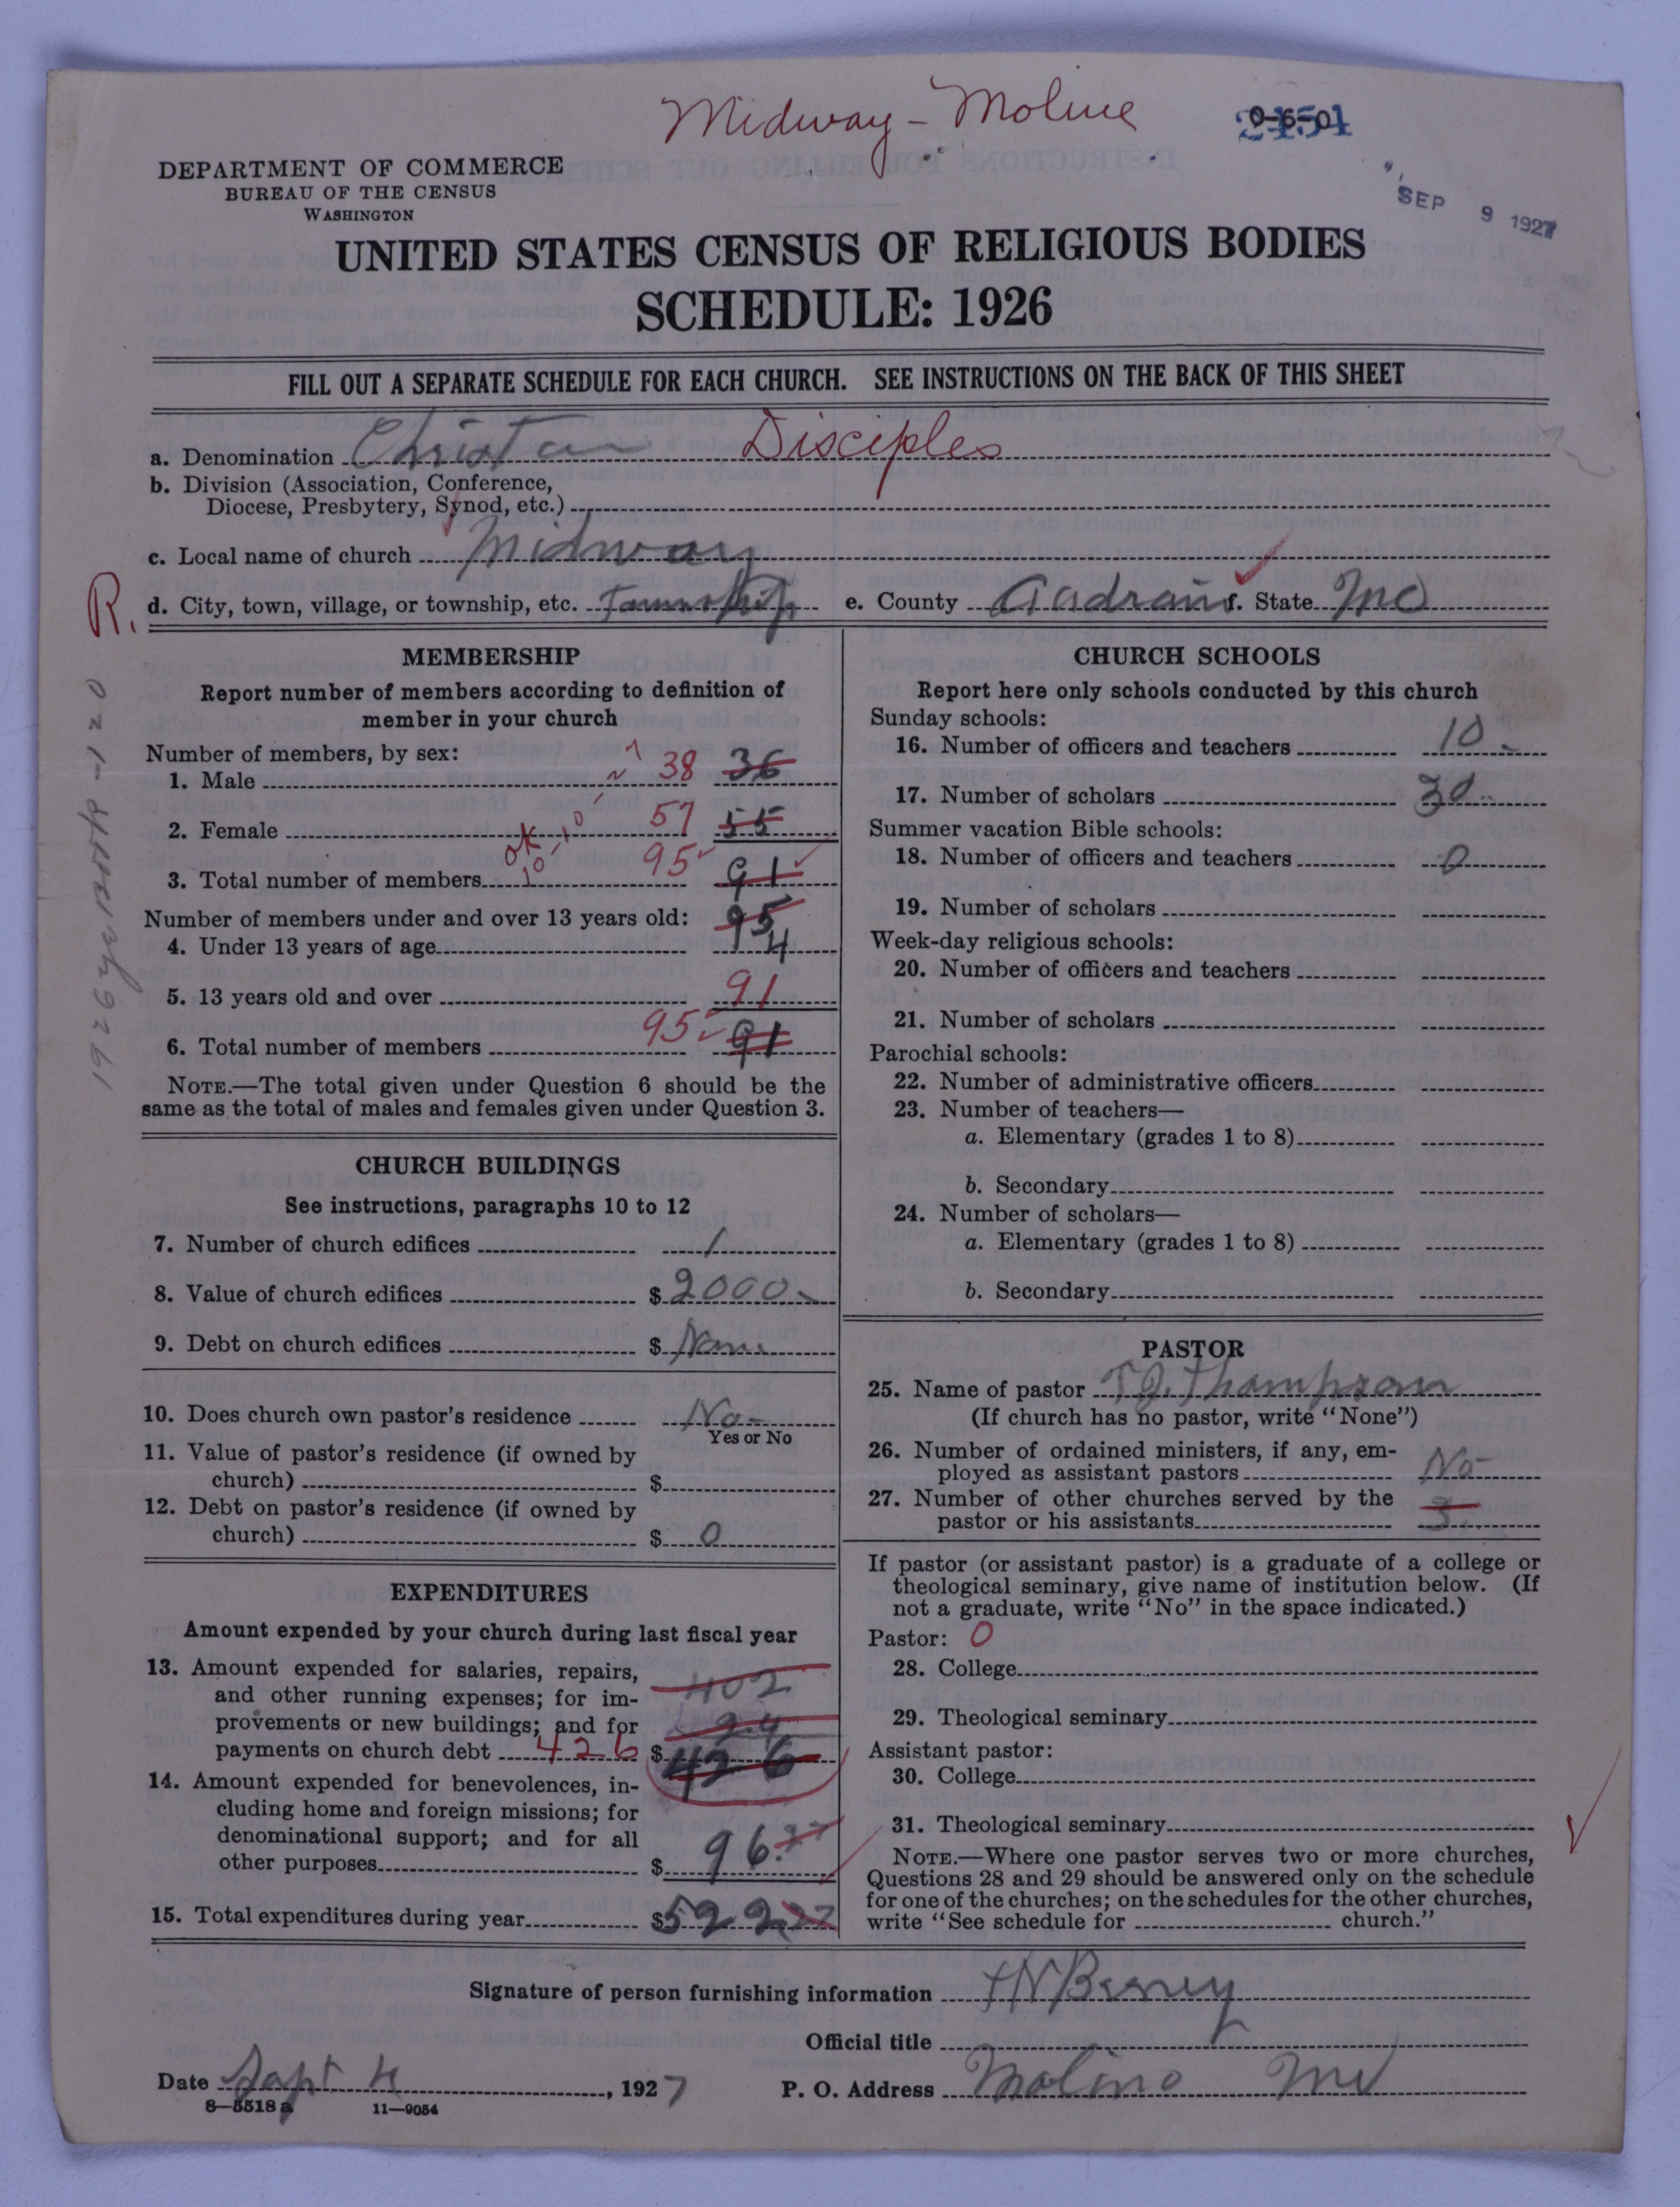 Midway - Moline
DEPARTMENT OF COMMERCE
BUREAU OF THE CENSUS
WASHINGTON
SEP 9 1927
UNITED STATES CENSUS OF RELIGIOUS BODIES
SCHEDULE: 1926
FILL OUT A SEPARATE SCHEDULE FOR EACH CHURCH. SEE INSTRUCTIONS ON THE BACK OF THIS SHEET
a. Denomination Christian Disciples
b. Division (Association, Conference,
Diocese, Presbytery, Synod, etc.)
c. Local name of church Midway
R. d. City, town, village, or township, etc. Township e. County Audrain f. State Mo
1926 yr Book - 120
MEMBERSHIP
Report number of members according to definition of
member in your church
Number of members, by sex:
1. Male 38 36
2. Female 57 55
OK 10-10
3. Total number of members 95 91
Number of members under and over 13 years old: 95
4. Under 13 years of age 4
5. 13 years old and over 91
6. Total number of members 95 91
NOTE.—The total given under Question 6 should be the
same as the total of males and females given under Question 3.
CHURCH BUILDINGS
See instructions, paragraphs 10 to 12
7. Number of church edifices 1
8. Value of church edifices $ 2000
9. Debt on church edifices $ None
10. Does church own pastor's residence No
Yes or No
11. Value of pastor's residence (if owned by
church) $
12. Debt on pastor's residence (if owned by
church) $ 0
EXPENDITURES
Amount expended by your church during last fiscal year
13. Amount expended for salaries, repairs, 402
and other running expenses; for im-
provements or new buildings; and for 24
payments on church debt 426 $ 426
14. Amount expended for benevolences, in-
cluding home and foreign missions; for
denominational support; and for all
other purposes $ 96.27
15. Total expenditures during year $ 522.27
CHURCH SCHOOLS
Report here only schools conducted by this church
Sunday schools:
16. Number of officers and teachers 10
17. Number of scholars 30
Summer vacation Bible schools:
18. Number of officers and teachers 0
19. Number of scholars
Week-day religious schools:
20. Number of officers and teachers
21. Number of scholars
Parochial schools:
22. Number of administrative officers
23. Number of teachers—
a. Elementary (grades 1 to 8)
b. Secondary
24. Number of scholars—
a. Elementary (grades 1 to 8)
b. Secondary
PASTOR
25. Name of pastor T. J. Thompson
(If church has no pastor, write "None")
26. Number of ordained ministers, if any, em-
ployed as assistant pastors No
27. Number of other churches served by the
pastor or his assistants 3
If pastor (or assistant pastor) is a graduate of a college or
theological seminary, give name of institution below. (If
not a graduate, write "No" in the space indicated.)
Pastor: 0
28. College
29. Theological seminary
Assistant pastor:
30. College
31. Theological seminary
NOTE.—Where one pastor serves two or more churches,
Questions 28 and 29 should be answered only on the schedule
for one of the churches; on the schedules for the other churches,
write "See schedule for church."
Signature of person furnishing information
Official title
Date Sept 4, 1927 P. O. Address Molino Mo
8—5518a 11—9054